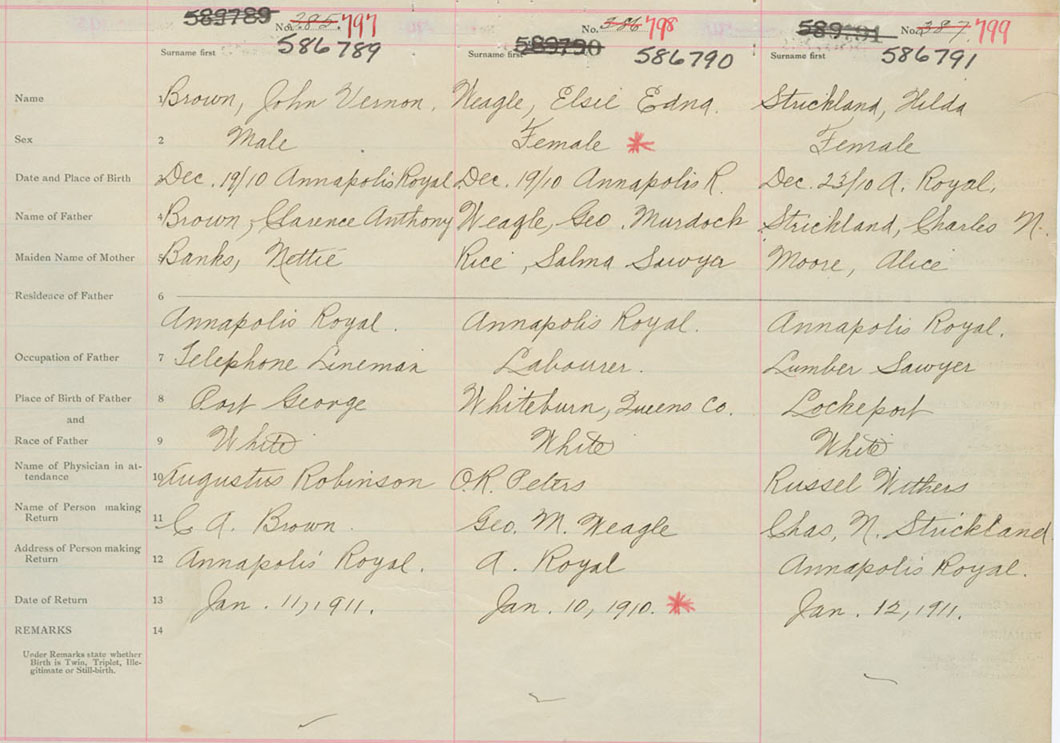 589789 No. 285. 797 No. 386 798 589791 No. 387. 799
Surname first 586789 Surname first 589790 586790 Surname first 586791
Name 1 Brown, John Vernon. Weagle, Elsie Edna. Strickland, Hilda
Sex 2 Male Female * Female
Date and Place of Birth 3 Dec. 19/10 Annapolis Royal Dec. 19/10 Annapolis R. Dec. 23/10 A. Royal,
Name of Father 4 Brown, Clarence Anthony Weagle, Geo. Murdock Strickland, Charles N.
Maiden Name of Mother 5 Banks, Nettie Rice, Salma Sawyer Moore, Alice
Residence of Father 6
Annapolis Royal. Annapolis Royal. Annapolis Royal.
Occupation of Father 7 Telephone Lineman Labourer. Lumber Sawyer
Place of Birth of Father 8 Port George Whiteburn, Queens Co. Lockeport
and
Race of Father 9 White White White
Name of Physician in at-
tendance 10 Augustus Robinson O.R. Peters Russel Withers
Name of Person making
Return 11 C A. Brown. Geo. M. Weagle Chas, N. Strickland
Address of Person making
Return 12 Annapolis Royal. A. Royal Annapolis Royal.
Date of Return 13 Jan. 11, 1911. Jan. 10, 1910. * Jan. 12, 1911.
REMARKS 14
Under Remarks state whether
Birth is Twin, Triplet, Ille-
gitimate or Still-birth.